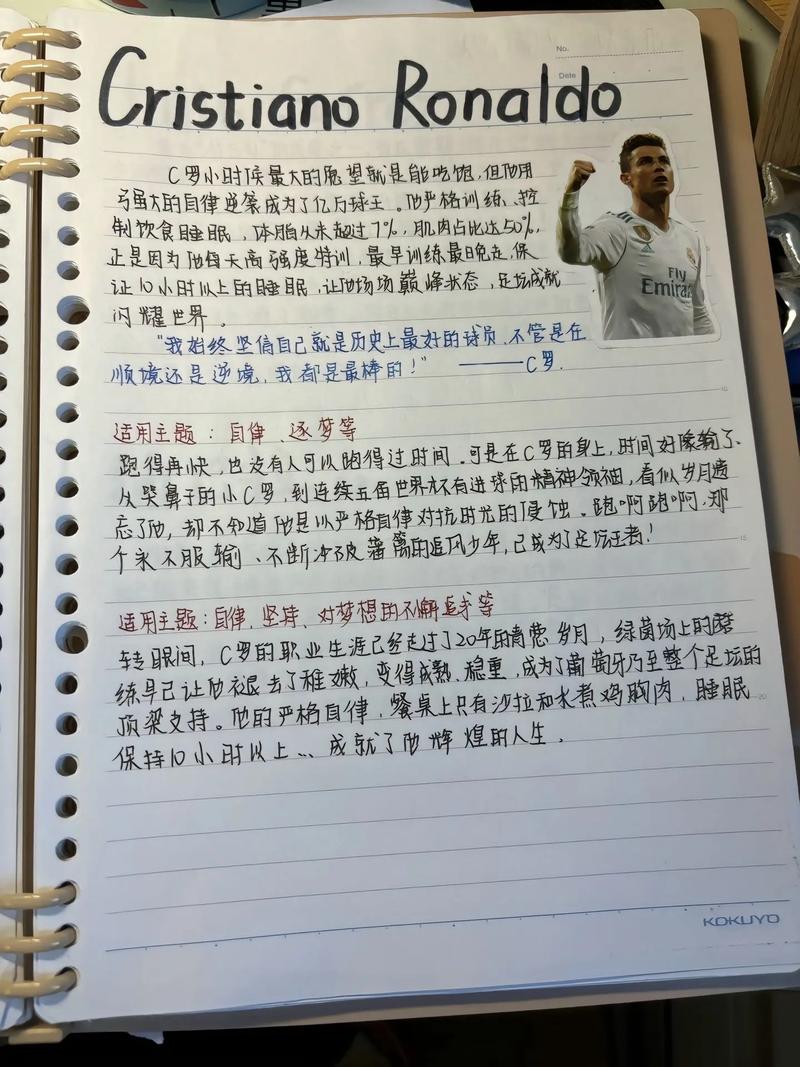 No.
Date
Cristiano Ronaldo
C罗小时候最大的愿望就是能吃饱,但他用
强大的自律逆袭成为了亿万球王。他严格训练、控
制饮食睡眠,体脂从未超过7%,肌肉占比达50%,
正是因为他每天高强度特训,最早训练最晚走,保
证10小时以上的睡眠,让他场场巅峰状态,足坛成就
闪耀世界。
"我始终坚信自己就是历史上最好的球员,不管是在
顺境还是逆境,我都是最棒的!" ——C罗.
Fly
Emirates
适用主题:自律、逐梦等
跑得再快,也没有人可以跑得过时间.可是在C罗的身上,时间好像输了、
从哭鼻子的小C罗,到连续五届世界杯有进球的精神领袖,看似岁月遗
忘了他,却不知道他是以严格自律对抗时光的侵蚀。跑啊跑啊,那
个永不服输、不断冲破藩篱的追风少年,已成为了足坛王者!
适用主题:自律、坚持、对梦想的不懈追求等
转眼间,C罗的职业生涯已经走过了20年的青葱岁月,绿茵场上的磨
练早已让他褪去了稚嫩,变得成熟、稳重,成为了葡萄牙乃至整个足坛的
顶梁支持。他的严格自律,餐桌上只有沙拉和水煮鸡胸肉,睡眠
保持10小时以上...成就了他辉煌的人生.
10
15
20
KOKUYO